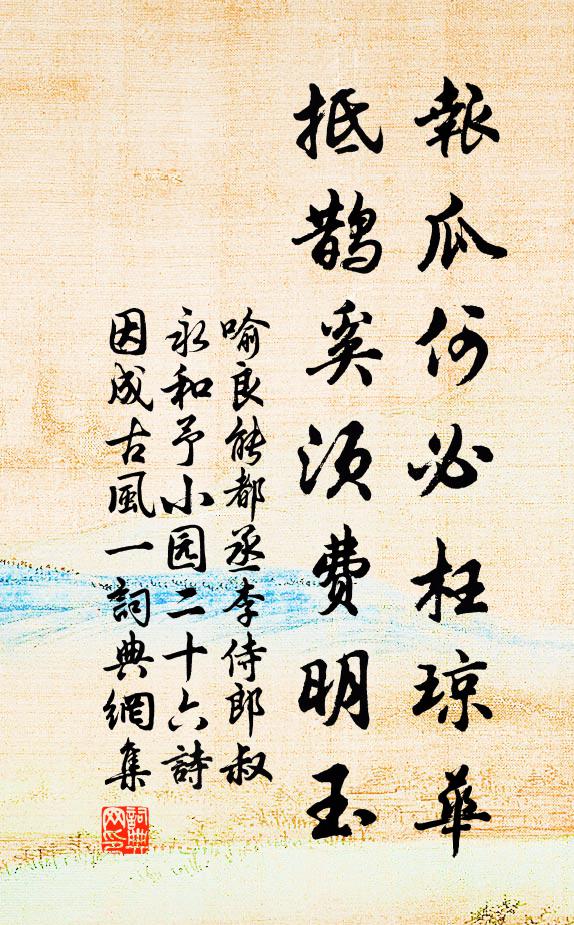 報瓜何必枉琼華
抵鹊奚须费明玉
喻良能都丞李侍郎叔
永和予小园二十六詩
因成古風一詞典網集
詞典
网印